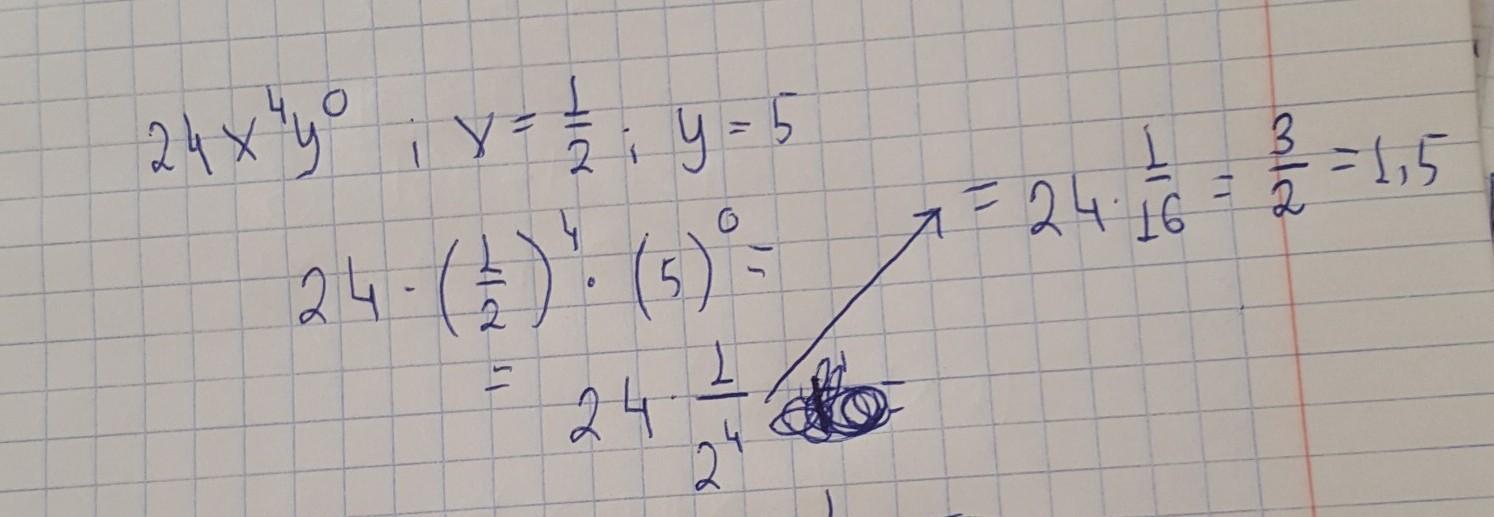 24x⁴y⁰ ; x = 1/2 ; y = 5
24 · (1/2)⁴ · (5)⁰ =
= 24 · 1/2⁴
= 24 · 1/16 = 3/2 = 1,5